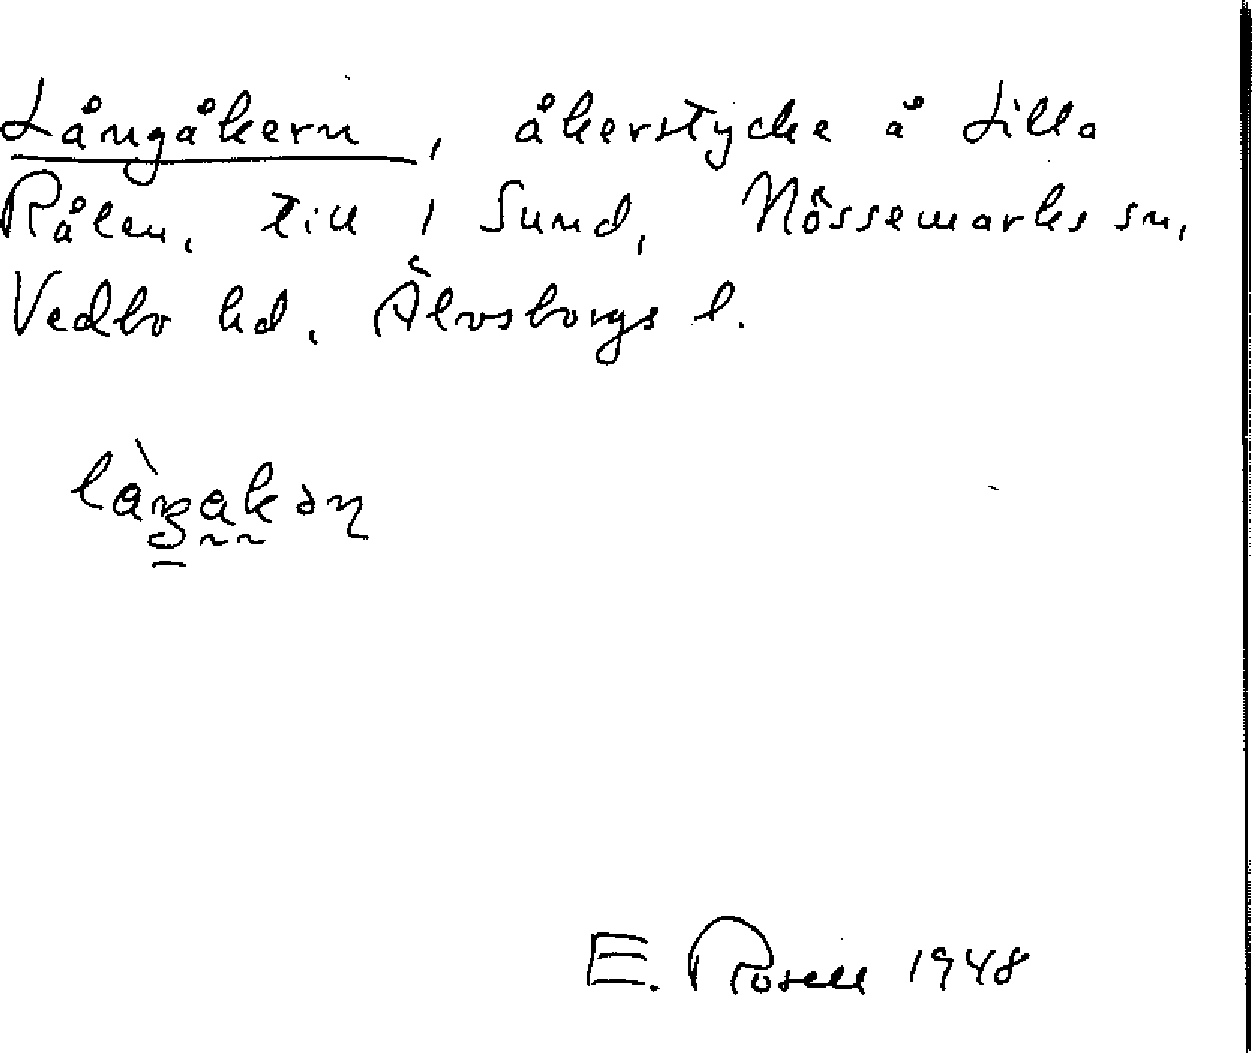 Långåkern, åkerstycke å Lilla
Rålen, till 1 Sund, Nössemarks sn,
Vedbo hd, Älvsborgs l.
E. Rosell 1948